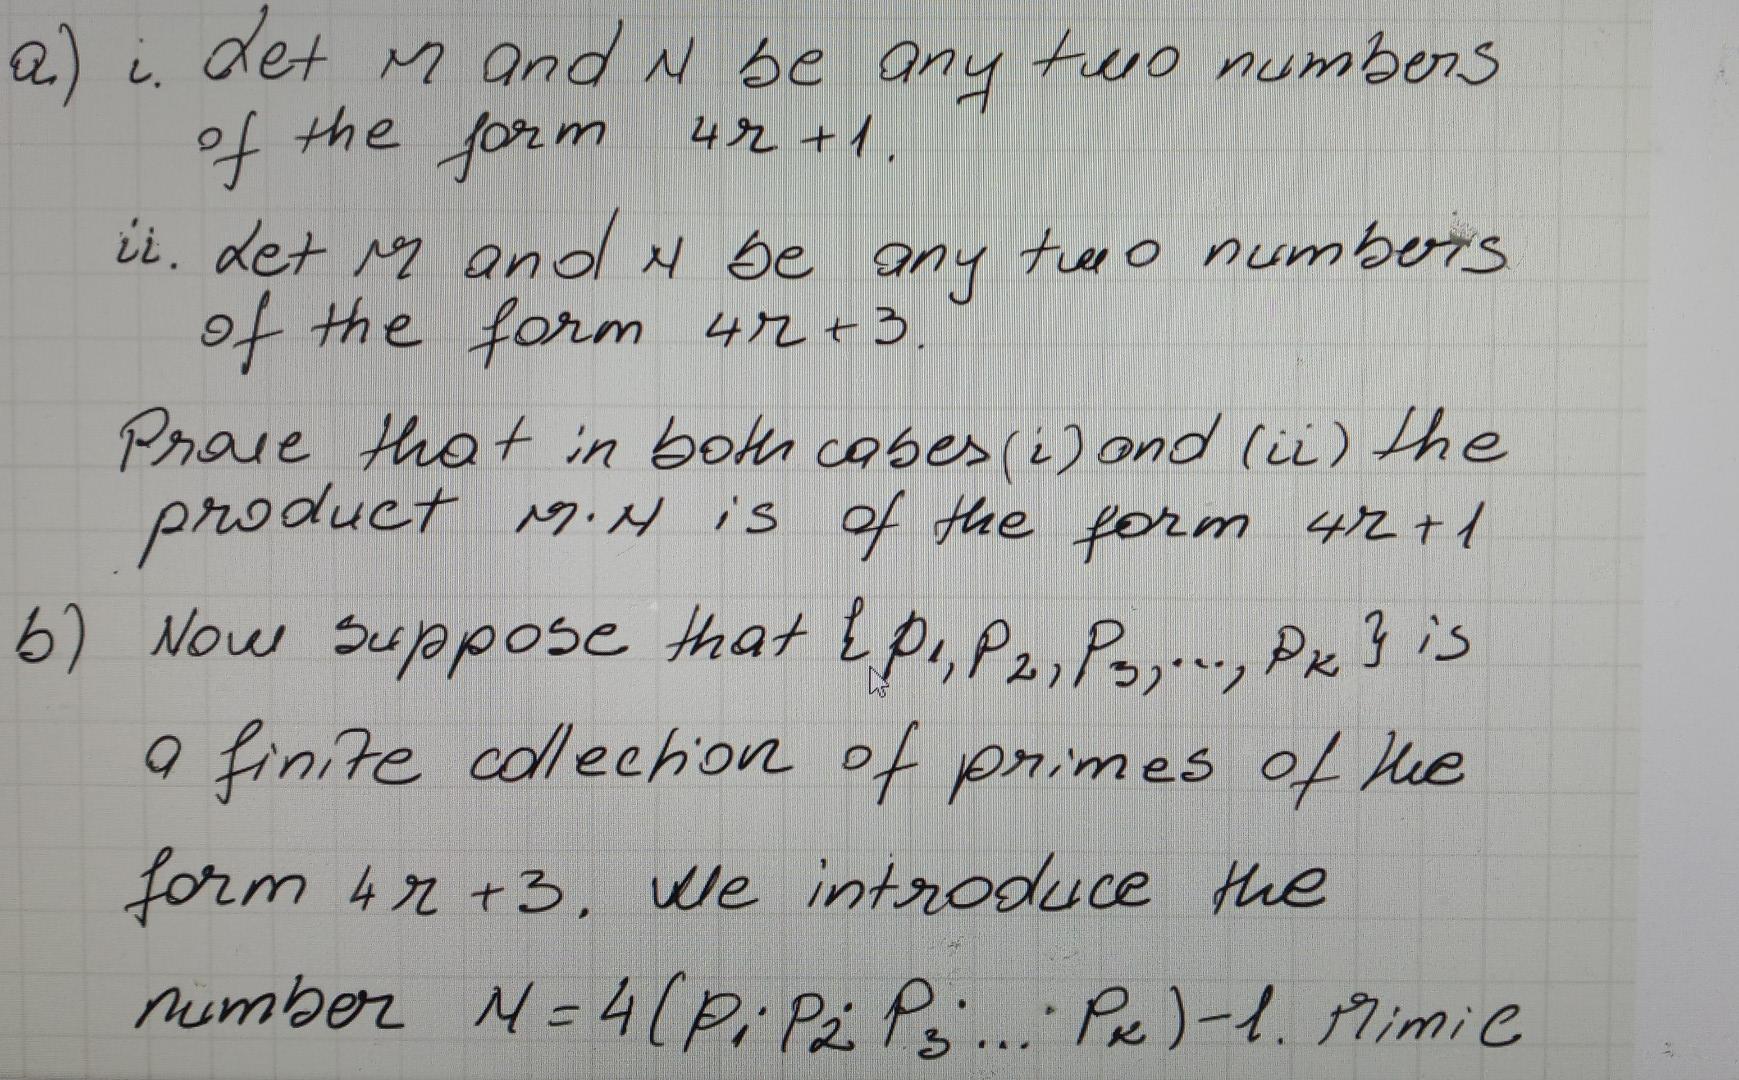 a) i. Let M and N be any two numbers
of the form 4r+1.
ii. Let M and N be any two numbers
of the form 4r+3.
Prove that in both cases (i) and (ii) the
product M·N is of the form 4r+1
b) Now suppose that {p₁, p₂, p₃, ..., pₖ} is
a finite collection of primes of the
form 4r+3. We introduce the
number N=4(p₁·p₂·p₃·...·pₖ)-1. Mimic